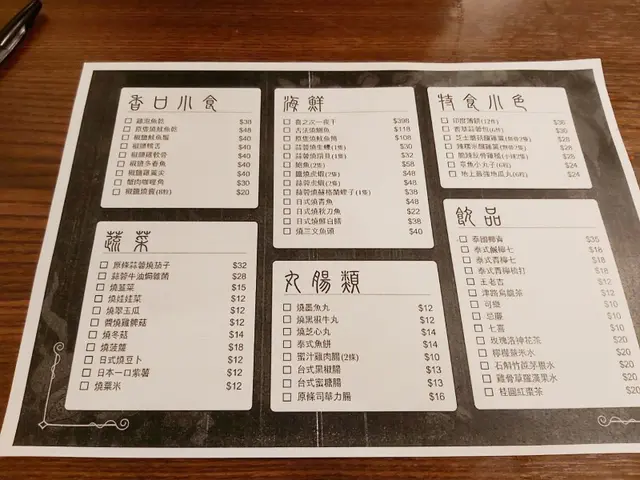 香口小食
雞泡魚乾 $38
原隻燒魷魚乾 $48
椒鹽魷魚鬚 $40
椒鹽鴨舌 $40
椒鹽雞軟骨 $40
椒鹽多春魚 $40
椒鹽雞翼尖 $40
蟹肉咖喱角 $30
椒鹽燒賣(8粒) $20
蔬菜
原條蒜蓉燒茄子 $32
蒜蓉牛油焗雜菌 $28
燒韮菜 $15
燒娃娃菜 $12
燒翠玉瓜 $12
醬燒雞髀菇 $12
燒冬菇 $14
燒菠蘿 $18
日式燒豆卜 $12
日本一口紫薯 $12
燒粟米 $12
海鮮
一夜干 $398
古法燒鯛魚 $118
原隻燒魷魚筒 $108
蒜蓉燒生蠔(1隻) $30
蒜蓉燒扇貝(1隻) $32
鮑魚(2隻) $58
鹽燒虎蝦(2隻) $48
蒜蓉虎蝦(2隻) $48
蒜蓉燒蘇格蘭蟶子(1隻) $38
日式燒青魚 $48
日式燒秋刀魚 $22
日式燒鯡白鱔 $38
燒三文魚頭 $40
丸腸類
燒墨魚丸 $12
燒黑椒牛丸 $12
燒芝心丸 $14
泰式魚餅 $14
蜜汁雞肉腸(2條) $10
台式黑椒腸 $13
台式蜜糖腸 $13
原條司華力腸 $16
特食小色
印度薄餅(12件) $36
香草蒜蓉包(6件) $30
芝士蘑菇釀雞翼(無骨2隻) $28
辣糯米釀雞翼(無骨2隻) $28
脆辣反骨雞槌(小辣2隻) $26
章魚小丸子(6粒) $24
地上最強地瓜丸(6粒) $24
飲品
泰國椰青 $35
泰式鹹檸七 $18
泰式青檸七 $18
泰式青檸梳打 $18
王老吉 $12
津路烏龍茶 $12
可樂 $10
忌廉 $10
七喜 $10
玫瑰洛神花茶 $20
檸檬薏米水 $20
石斛竹蔗茅根水 $20
雞骨草羅漢果水 $20
桂圓紅棗茶 $20